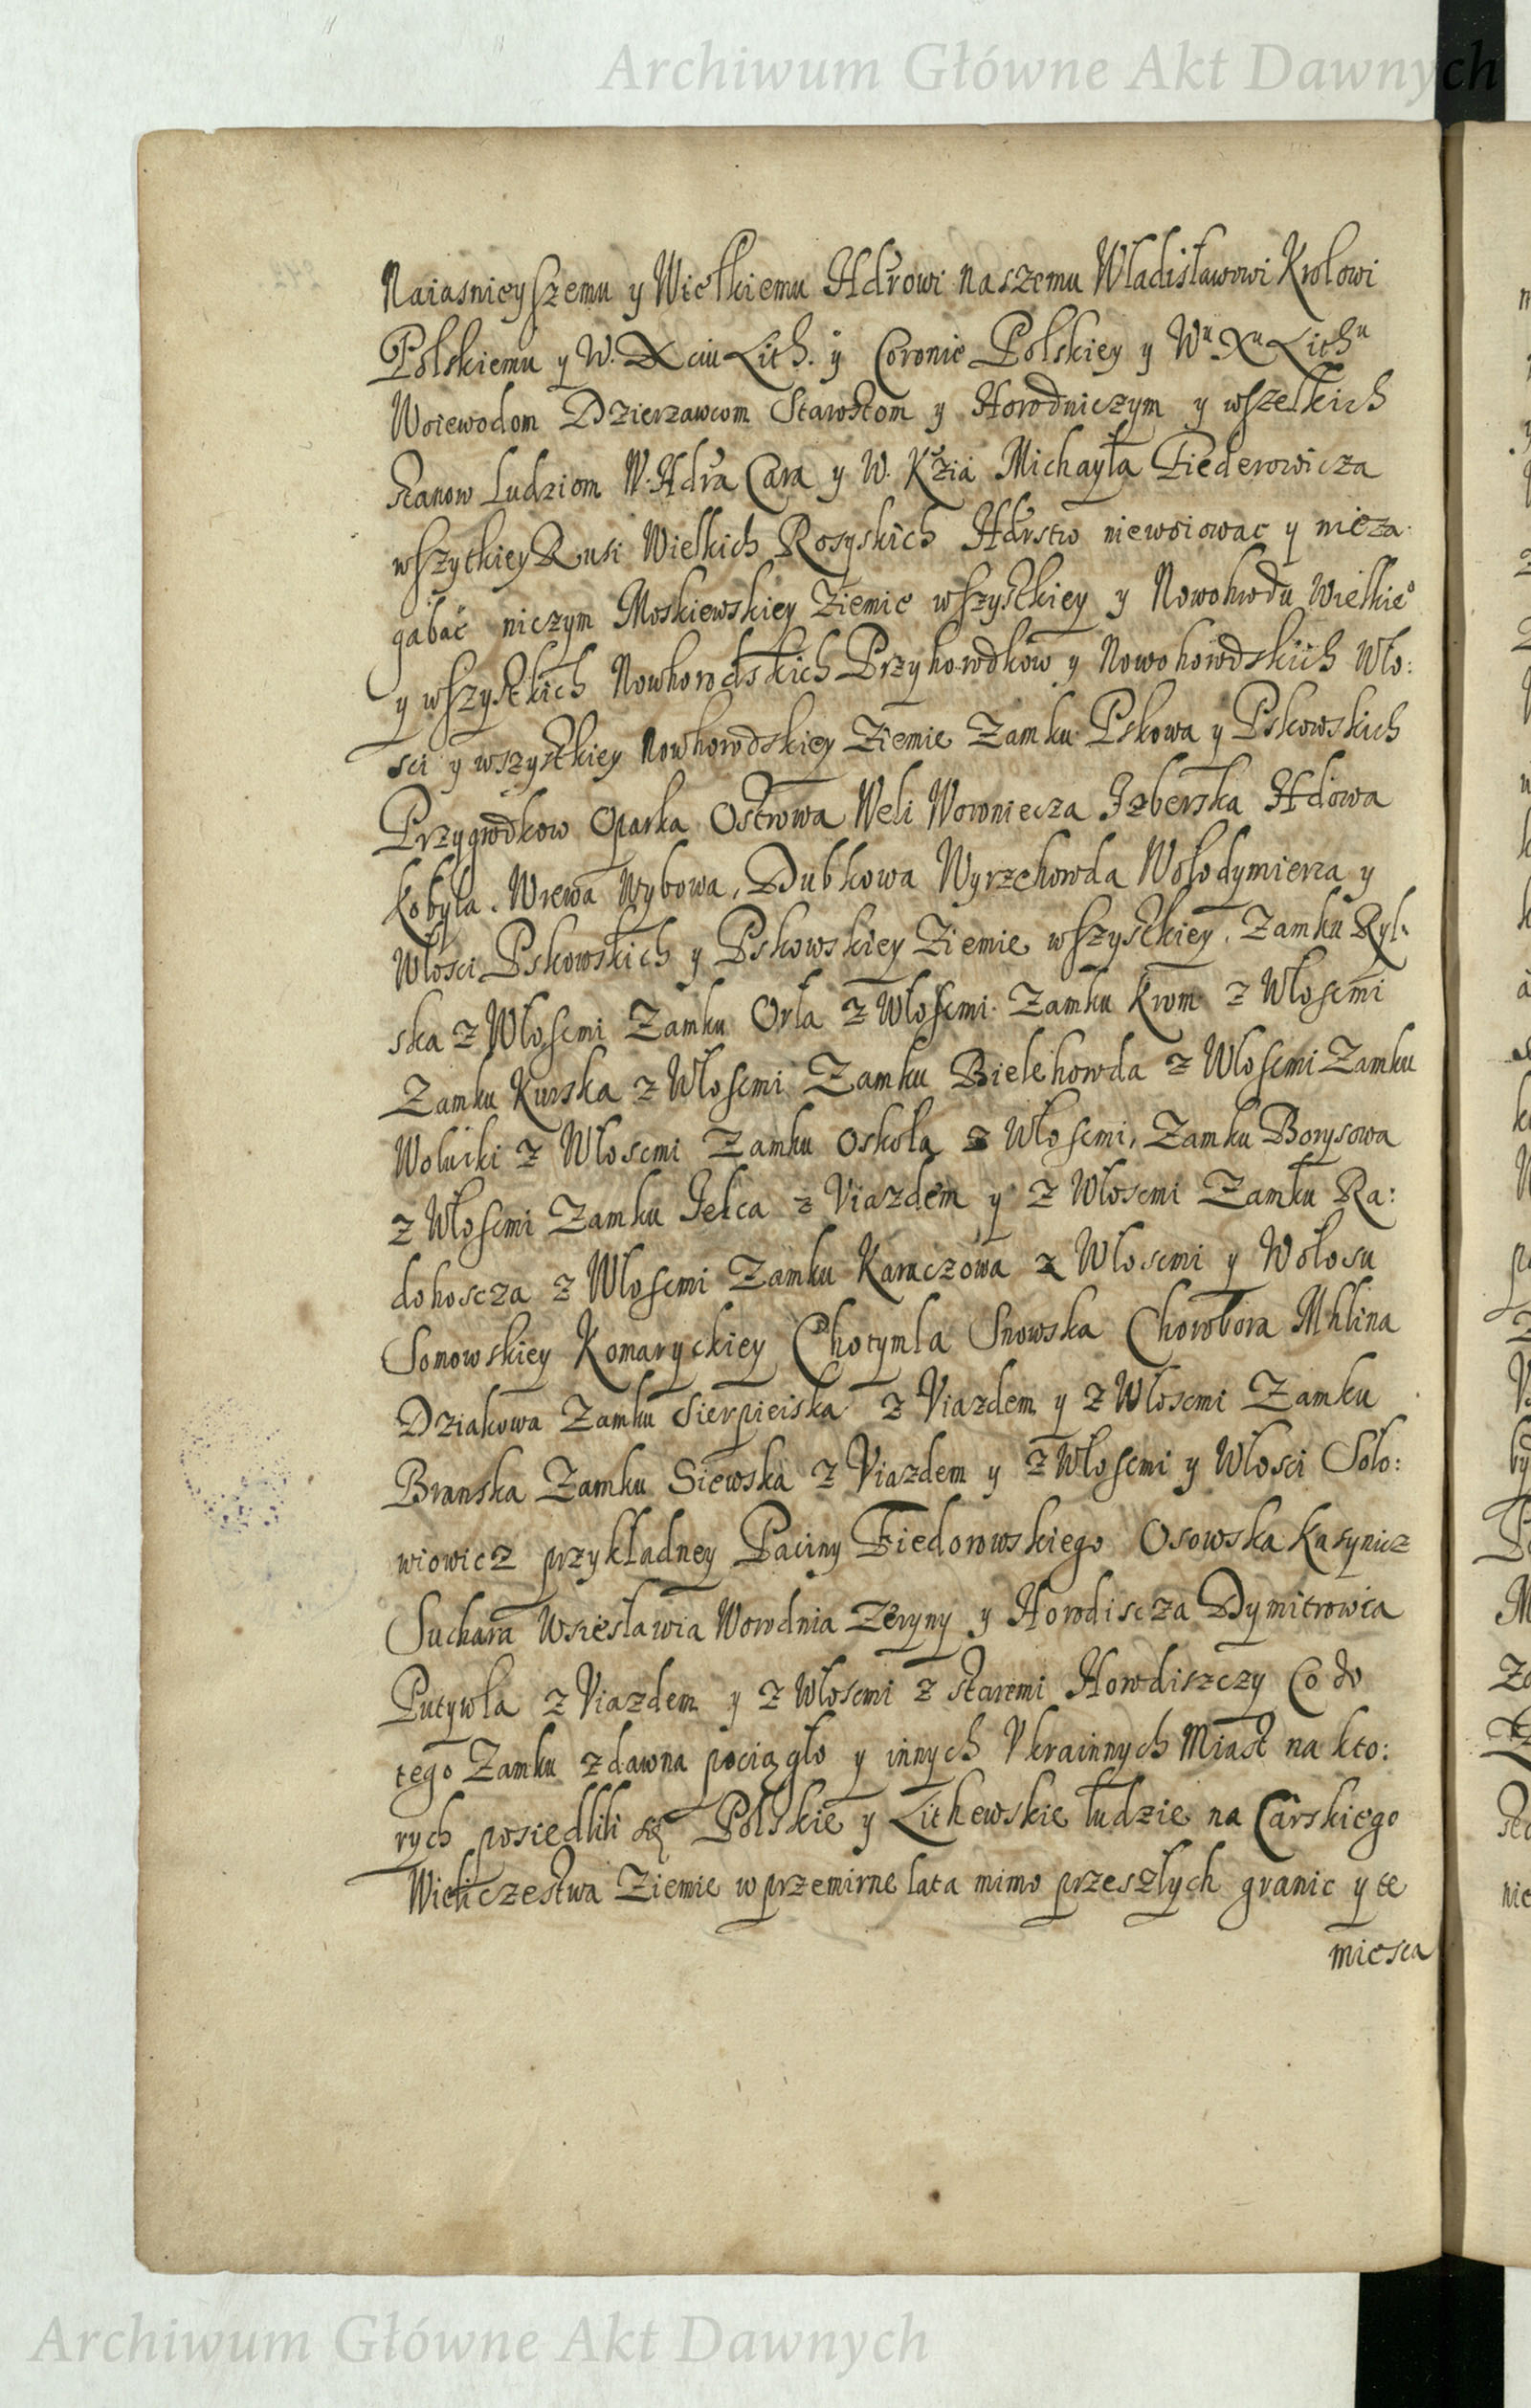 Archiwum Główne Akt Dawnych
Naiasnieyszemu y Wielkiemu Hdrowi naszemu Wladisławowi Krolowi
Polskiemu y W. Xciu Lith. y Coronie Polskiey y Wu Xu Lithu
Woiewodom Dzierzawcom Starostom y Horodniczym y wszelkich
stanow Ludziom W. Hdra Cara y W. Kzia Michayła Fiederowicza
wszytkiey Rusi Wielkich Rosyskich Hdrstw niewoiowac y nieza
gabać niczym Moskiewskiey Ziemie wszystkiey y Nowohrodu Wielkieo
y wszystkich Nowhorodskich Przyhorodkow y Nowohorodskich Wło:
sci y wszystkiey Nowhorodskiey Ziemie Zamku Pskowa y Pskowskich
Przygrodkow Oparka Ostrowa Weli Woroniecza Izberska Hdowa
Kobyla. Wrewa Wybowa, Dubkowa Wyrzehoroda Wołodymierza y
Włosci Pskowskich y Pskowskiey Ziemie wszystkiey. Zamku Ryl:
ska z Włoscmi Zamku Orla z Włoscmi. Zamku Krom z Włoscmi
Zamku Kurska z Włoscmi Zamku Bielehoroda z Włoscmi Zamku
Woluiki z Włoscmi Zamku Oskoła z Włoscmi, Zamku Borysowa
z Włoscmi Zamku Jelca z Viazdem y z Włoscmi Zamku Ra:
dohoscza z Włoscmi Zamku Karaczowa z Włoscmi y Wołosu
Somowskiey Komaryckiey Chotymla Snowska Chorobora Mhlina
Dziakowa Zamku Sierpieiska z Viazdem y z Włoscmi Zamku
Branska Zamku Siewska z Viazdem y z Włoscmi y Włosci Soło:
wiowicz przykładney Paciny Fiedorowskiego Osowska Kasynicz
Suchara Wsiesławia Worodnia Zeryny y Horodiscza Dymitrowca
Putywla z Viazdem y z Włoscmi z staremi Horodiszczy Co do
tego Zamku zdawna pociągło y innych Vkrainnych Miast na kto:
rych posiedlili się Polskie y Lithewskie ludzie na Carskiego
Wieliczestwa Ziemie w przemirne lata mimo przeszłych granic y te
miesca
Archiwum Główne Akt Dawnych